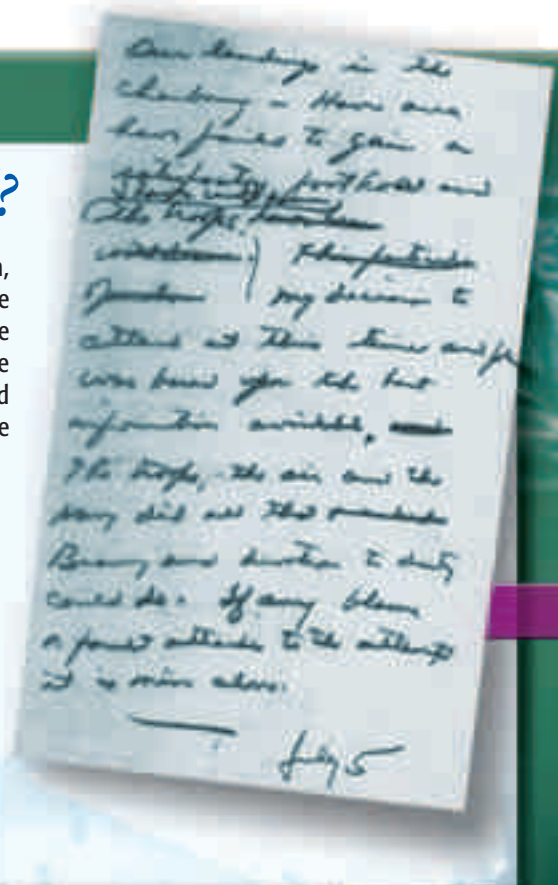 ?
,
e
e
e
d
e
Our landings in the
Cherbourg - Havre area
have failed to gain a
satisfactory foothold and
I have withdrawn
the troops. have been
withdrawn This particular
operation my decision to
attack at this time and place
was based upon the best
information available,
The troops, the air and the
Navy did all that
Bravery and devotion to duty
could do. If any blame
or fault attaches to the attempt
it is mine alone.
July 5